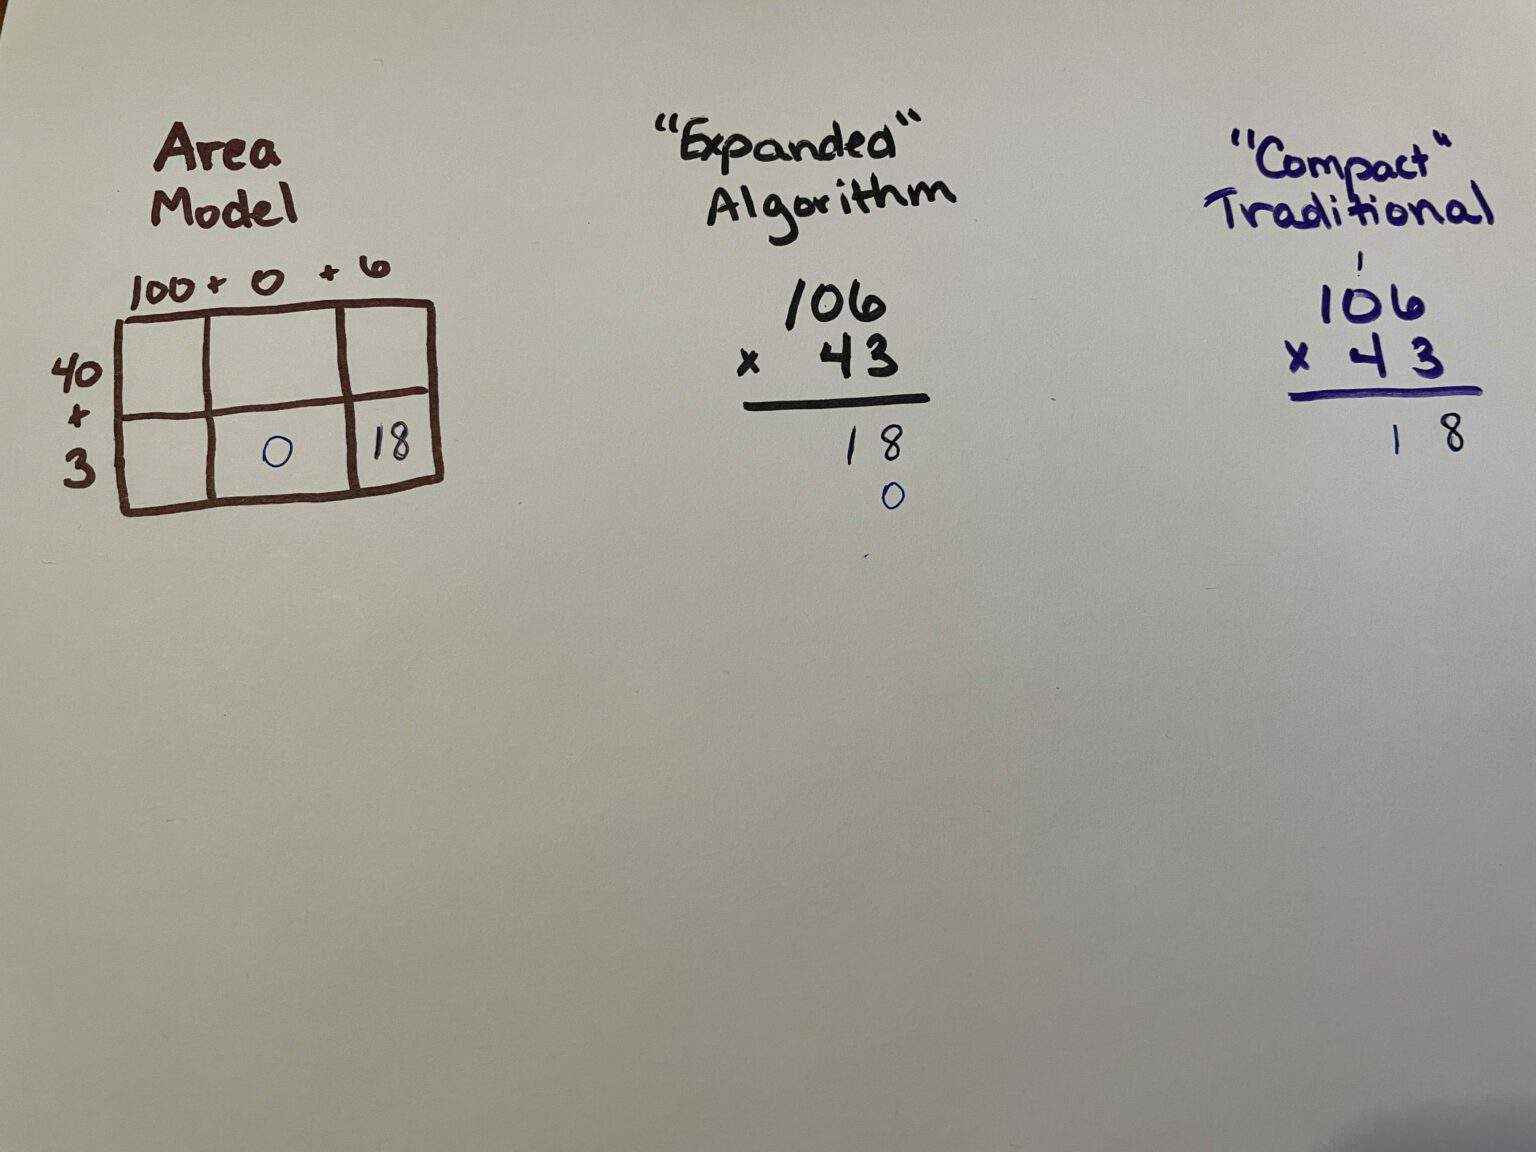 Area
Model
100 + 0 + 6
40
+
3
0 18
"Expanded"
Algorithm
106
x 43
18
0
"Compact"
Traditional
1
106
x 43
18